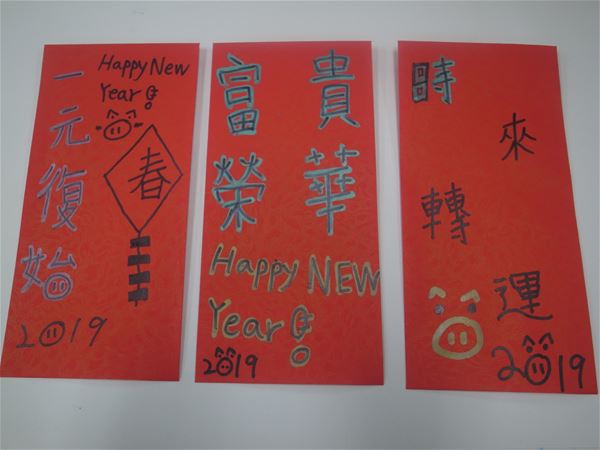 一元復始
Happy New
Year!
春
2019
富貴
榮華
Happy NEW
Year!
2019
時來
轉運
2019